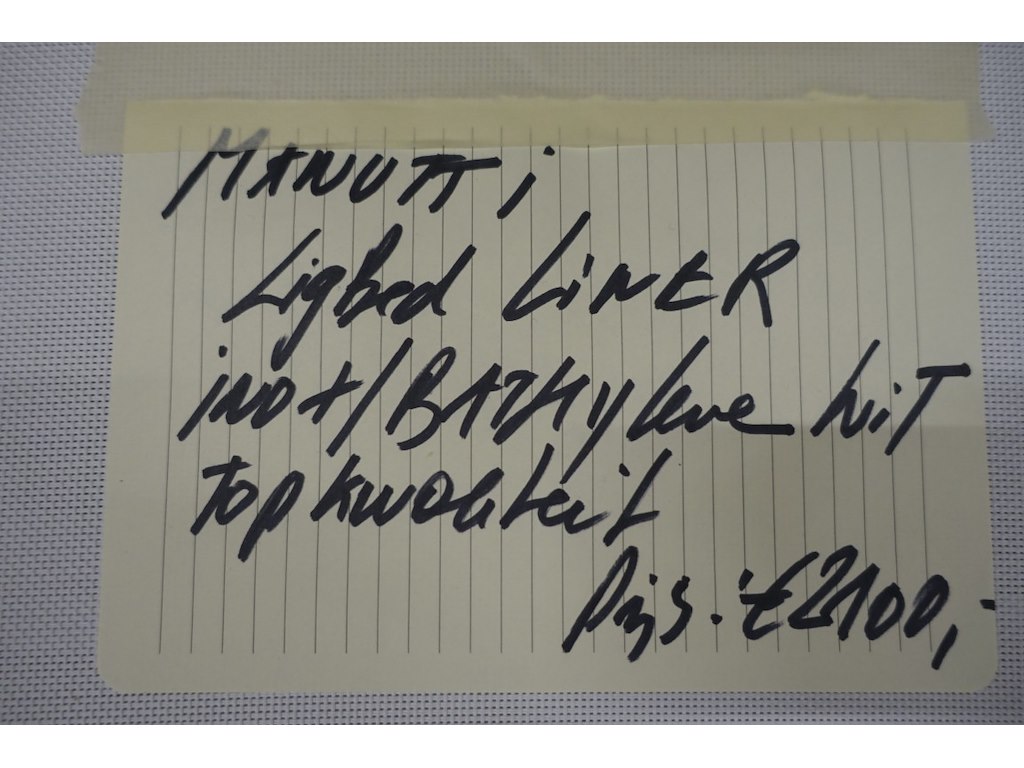 MANUTTi
Ligbed LiNER
iNOX/BATHYlene WiT
Topkwaliteit
Prijs: €2100,-